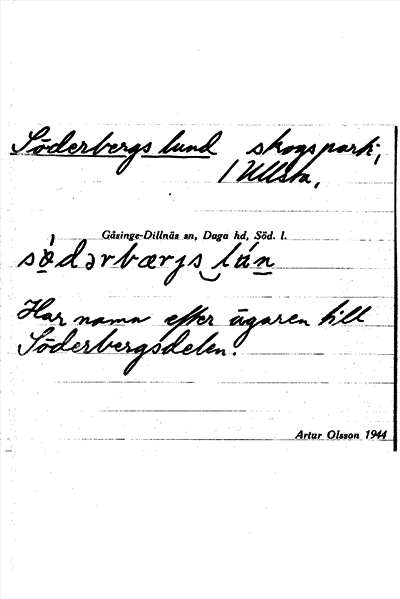 Söderbergs lund skogspark,
/ Ullsta,
Gåsinge-Dillnäs sn, Daga hd, Söd. l.
sö̀dərbærjs lún
Har namn efter ägaren till
Söderbergsdelen.
Artur Olsson 1944